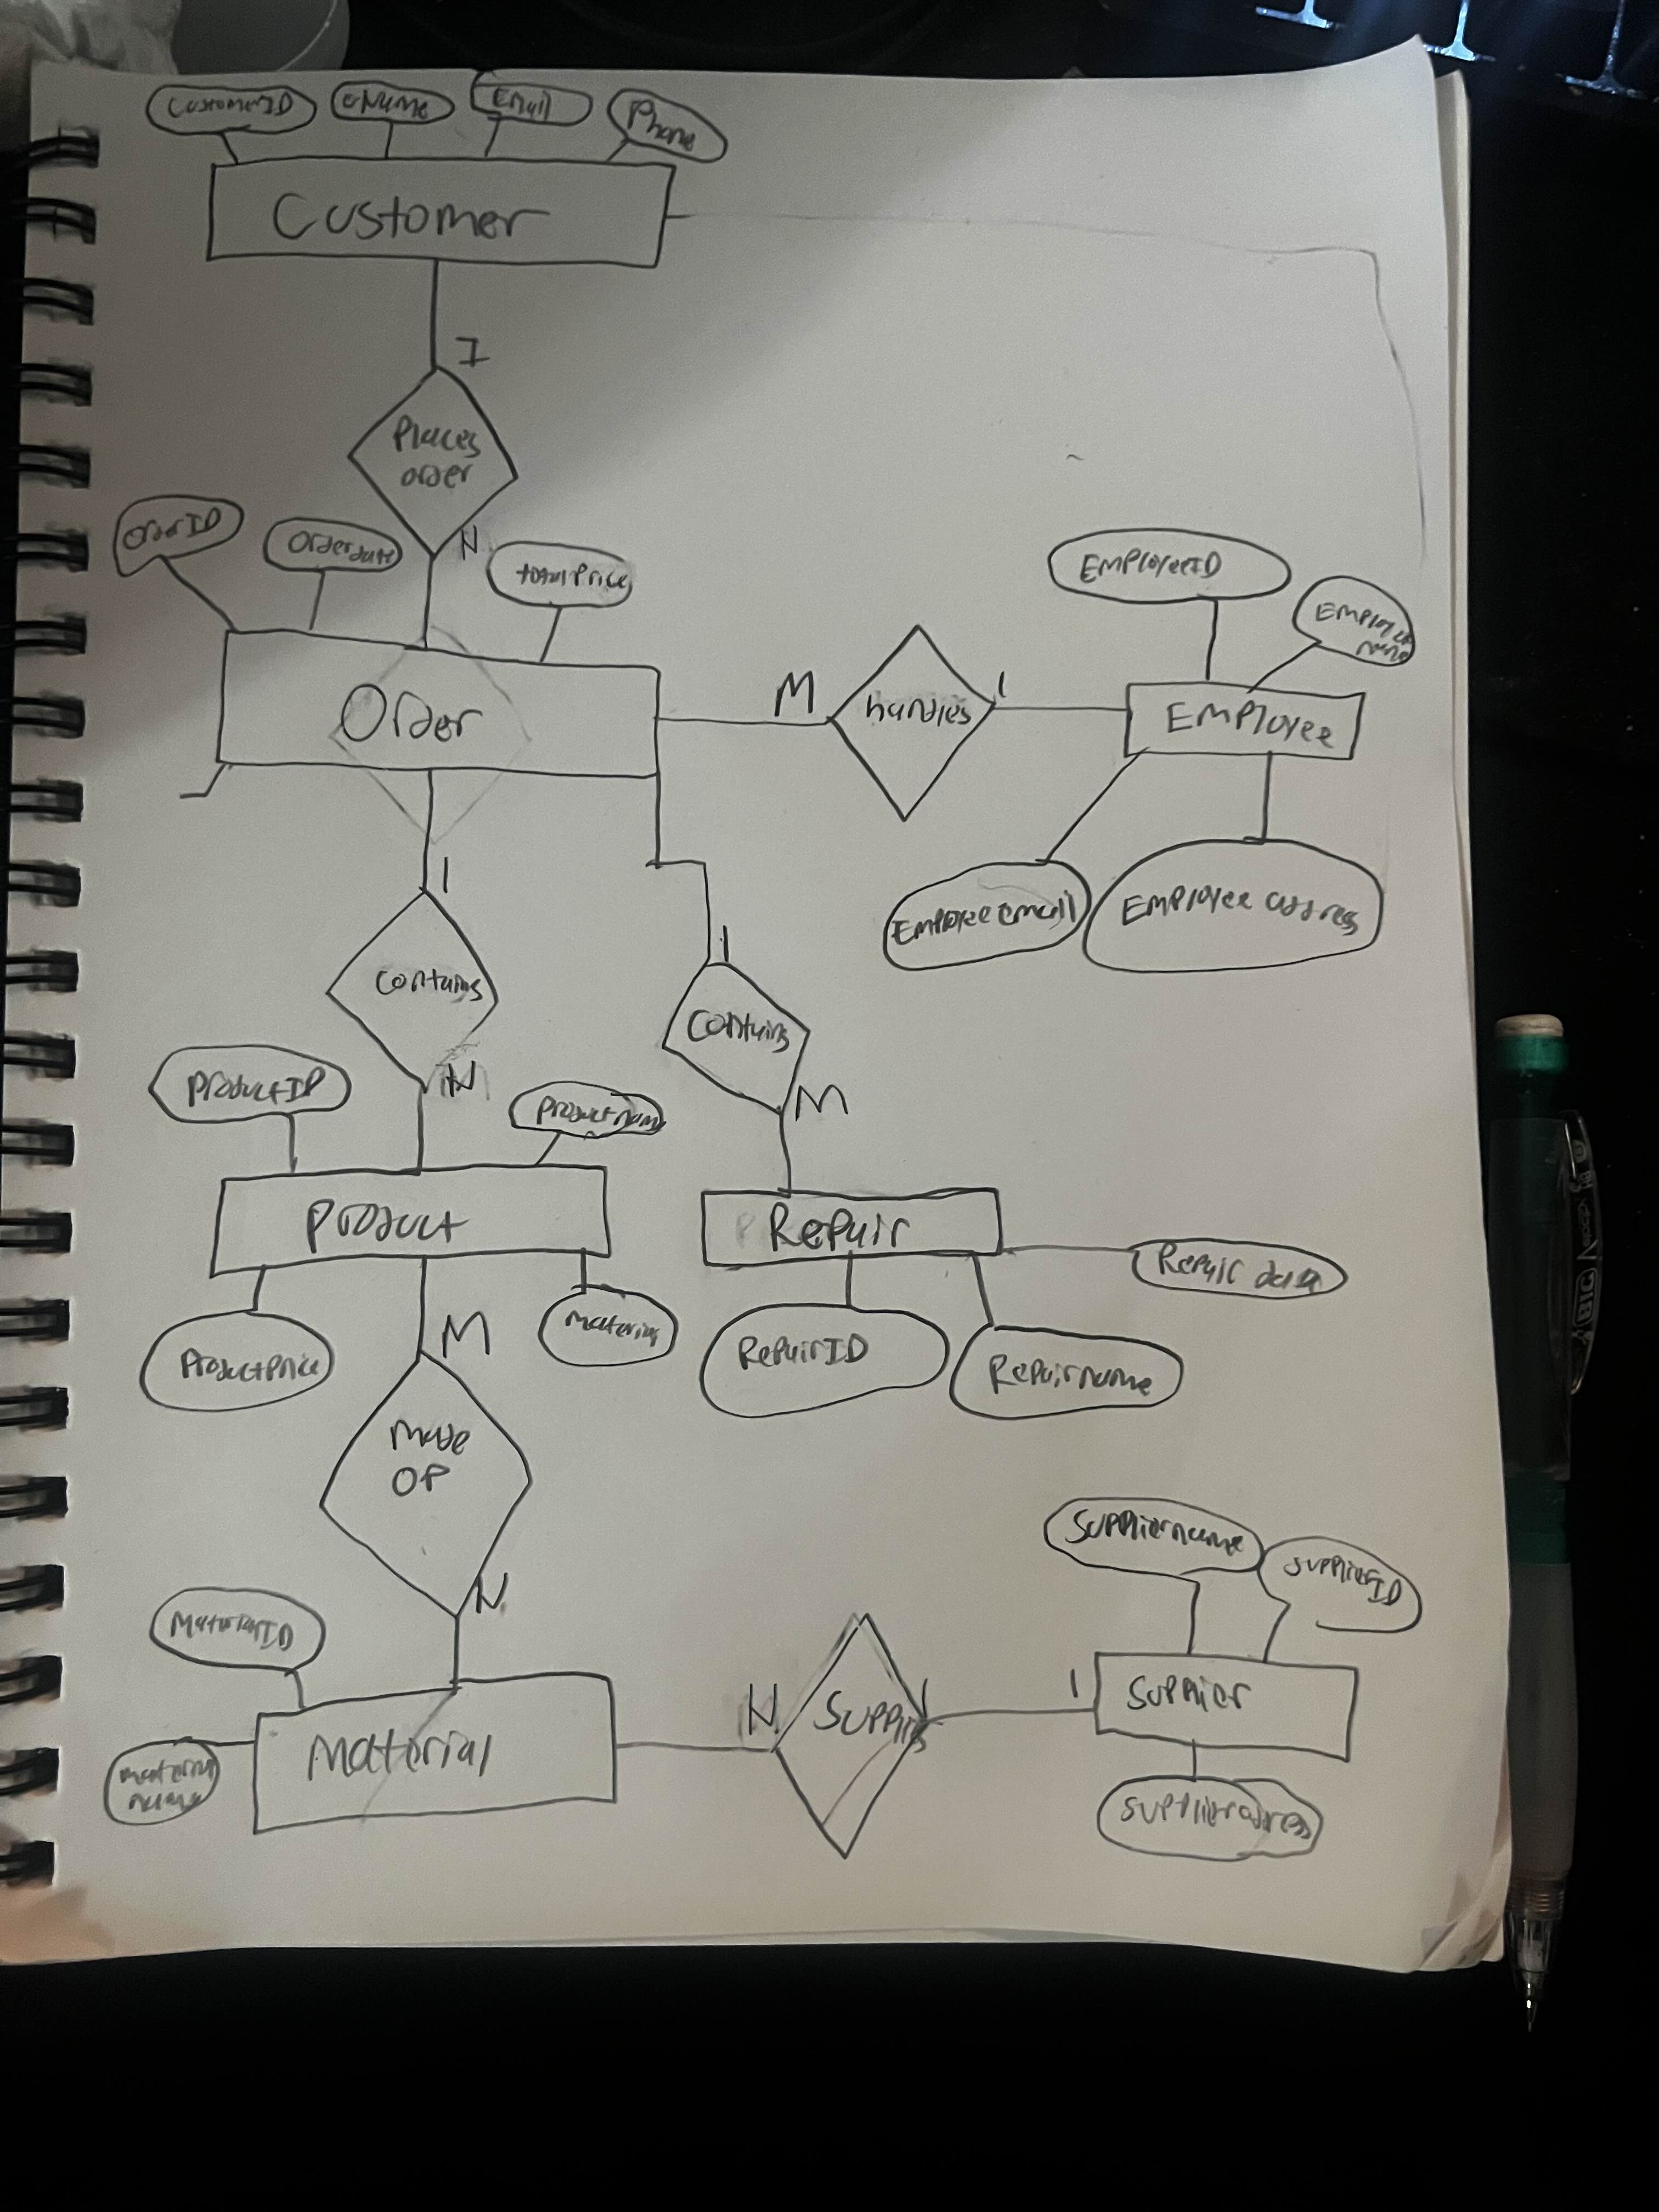 CustomerID
cName
Email
Phone
Customer
1
Places
order
N
OrderID
Orderdate
totalPrice
Order
M
handles
1
EmployeeID
Employee
name
Employee
Employee email
Employee address
1
Contains
N
1
Contains
M
ProductID
Productname
Product
ProductPrice
Material
Repair
Repair data
RepairID
Repairname
M
Made
OF
N
MaterialID
Material
Material
name
N
Supplies
1
1
Suppliername
SupplierID
Supplier
Supplieradress
BIC